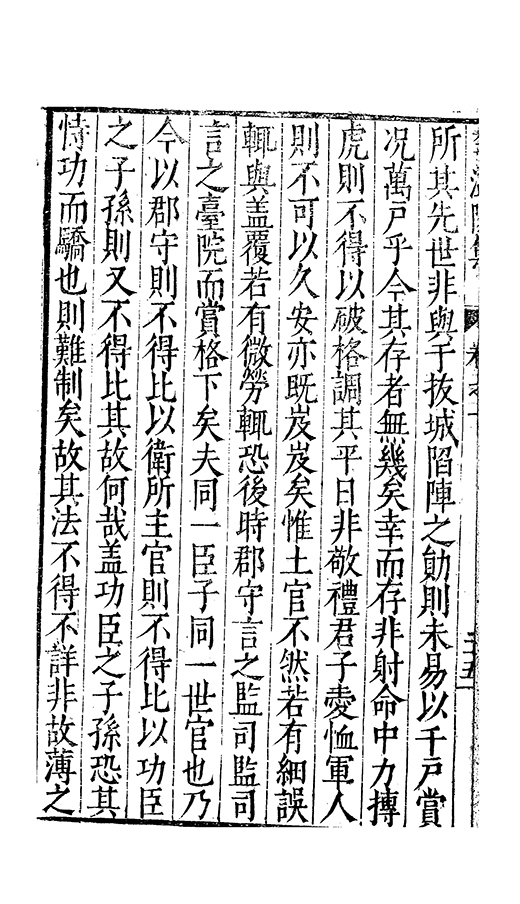 所其先世非與于拔城陷陣之勛則未易以千戶賞
况萬戶乎今其存者無幾矣幸而存非射命中力摶
虎則不得以破格調其平日非敬禮君子愛恤軍人
則不可以久安亦既岌岌矣惟土官不然若有細誤
輒與盖覆若有微勞輒恐後時郡守言之監司監司
言之臺院而賞格下矣夫同一臣子同一世官也乃
今以郡守則不得比以衛所主官則不得比以功臣
之子孫則又不得比其故何哉盖功臣之子孫恐其
恃功而驕也則難制矣故其法不得不詳非故薄之